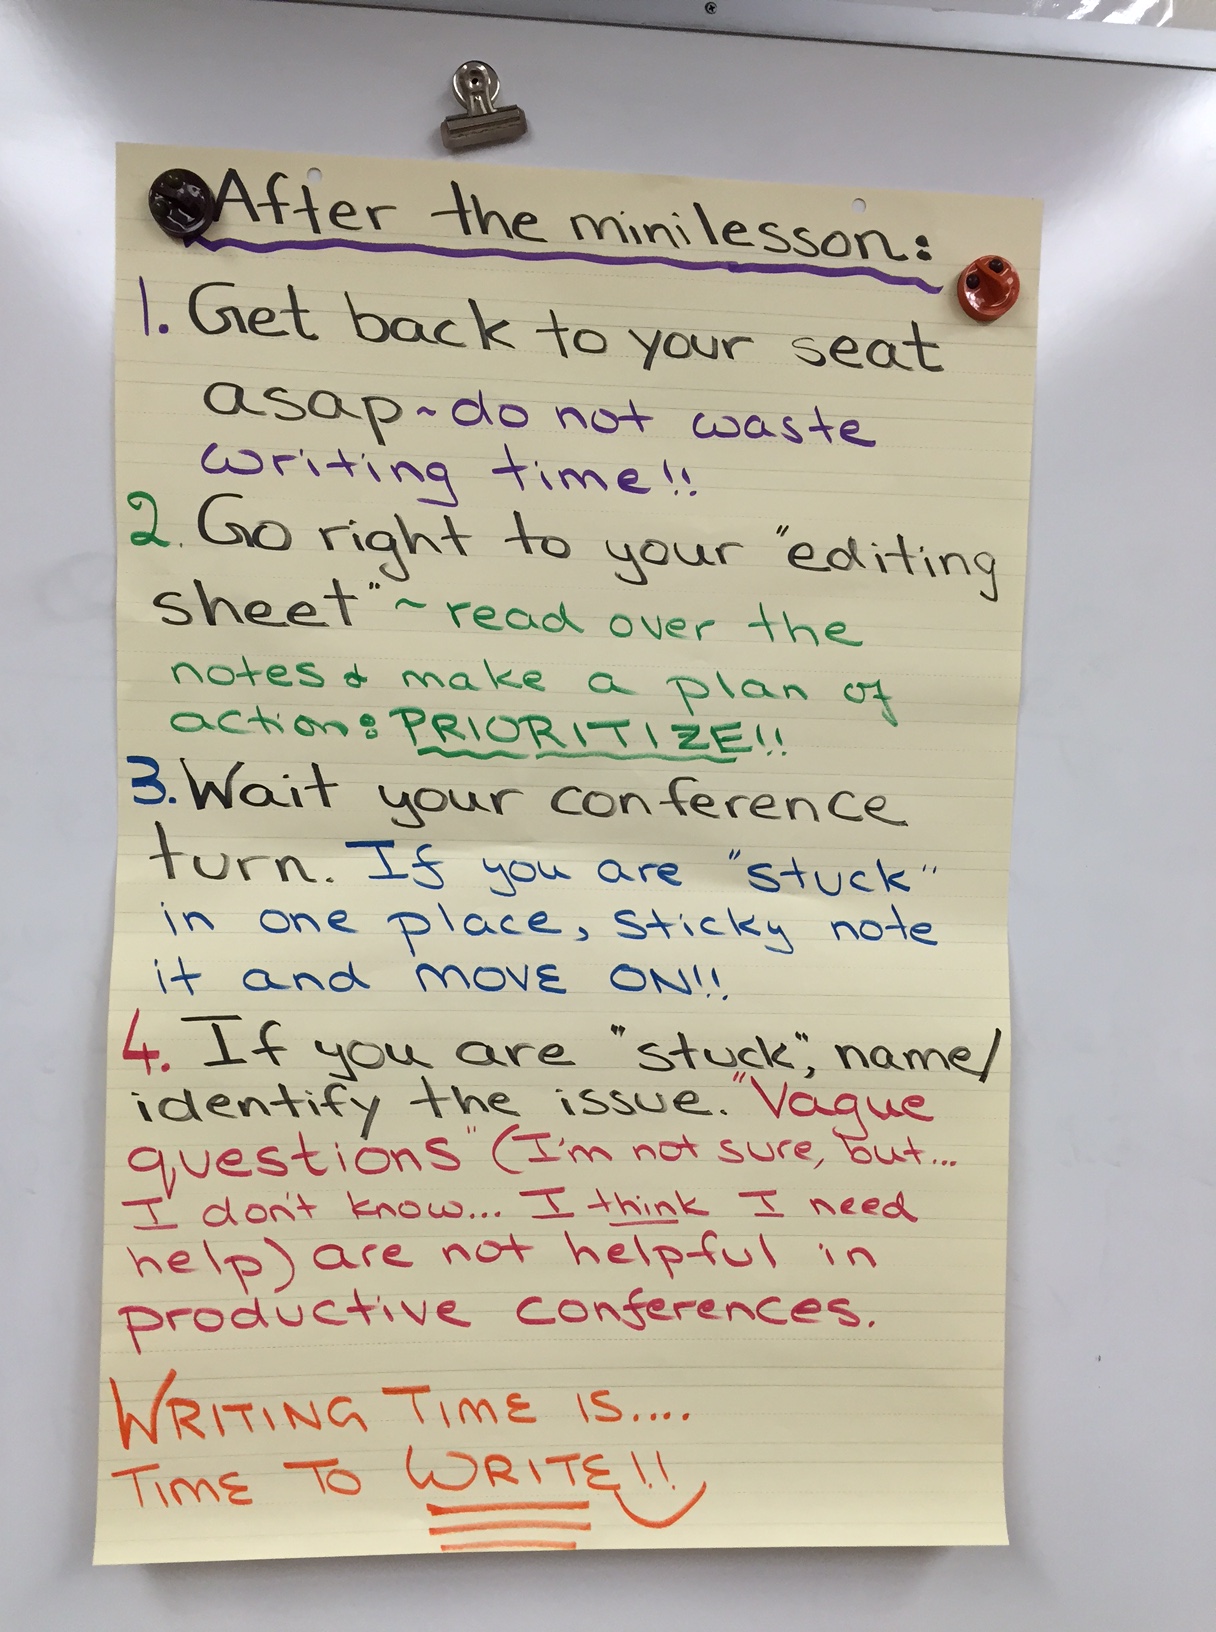 After the minilesson:
1. Get back to your seat
asap~do not waste
writing time!!
2. Go right to your "editing
sheet" ~ read over the
notes & make a plan of
action: PRIORITIZE!!
3. Wait your conference
turn. If you are "stuck"
in one place, sticky note
it and MOVE ON!!
4. If you are "stuck", name/
identify the issue. "Vague
questions" (I'm not sure, but...
I don't know... I think I need
help) are not helpful in
productive conferences.
WRITING TIME IS....
TIME TO WRITE!!